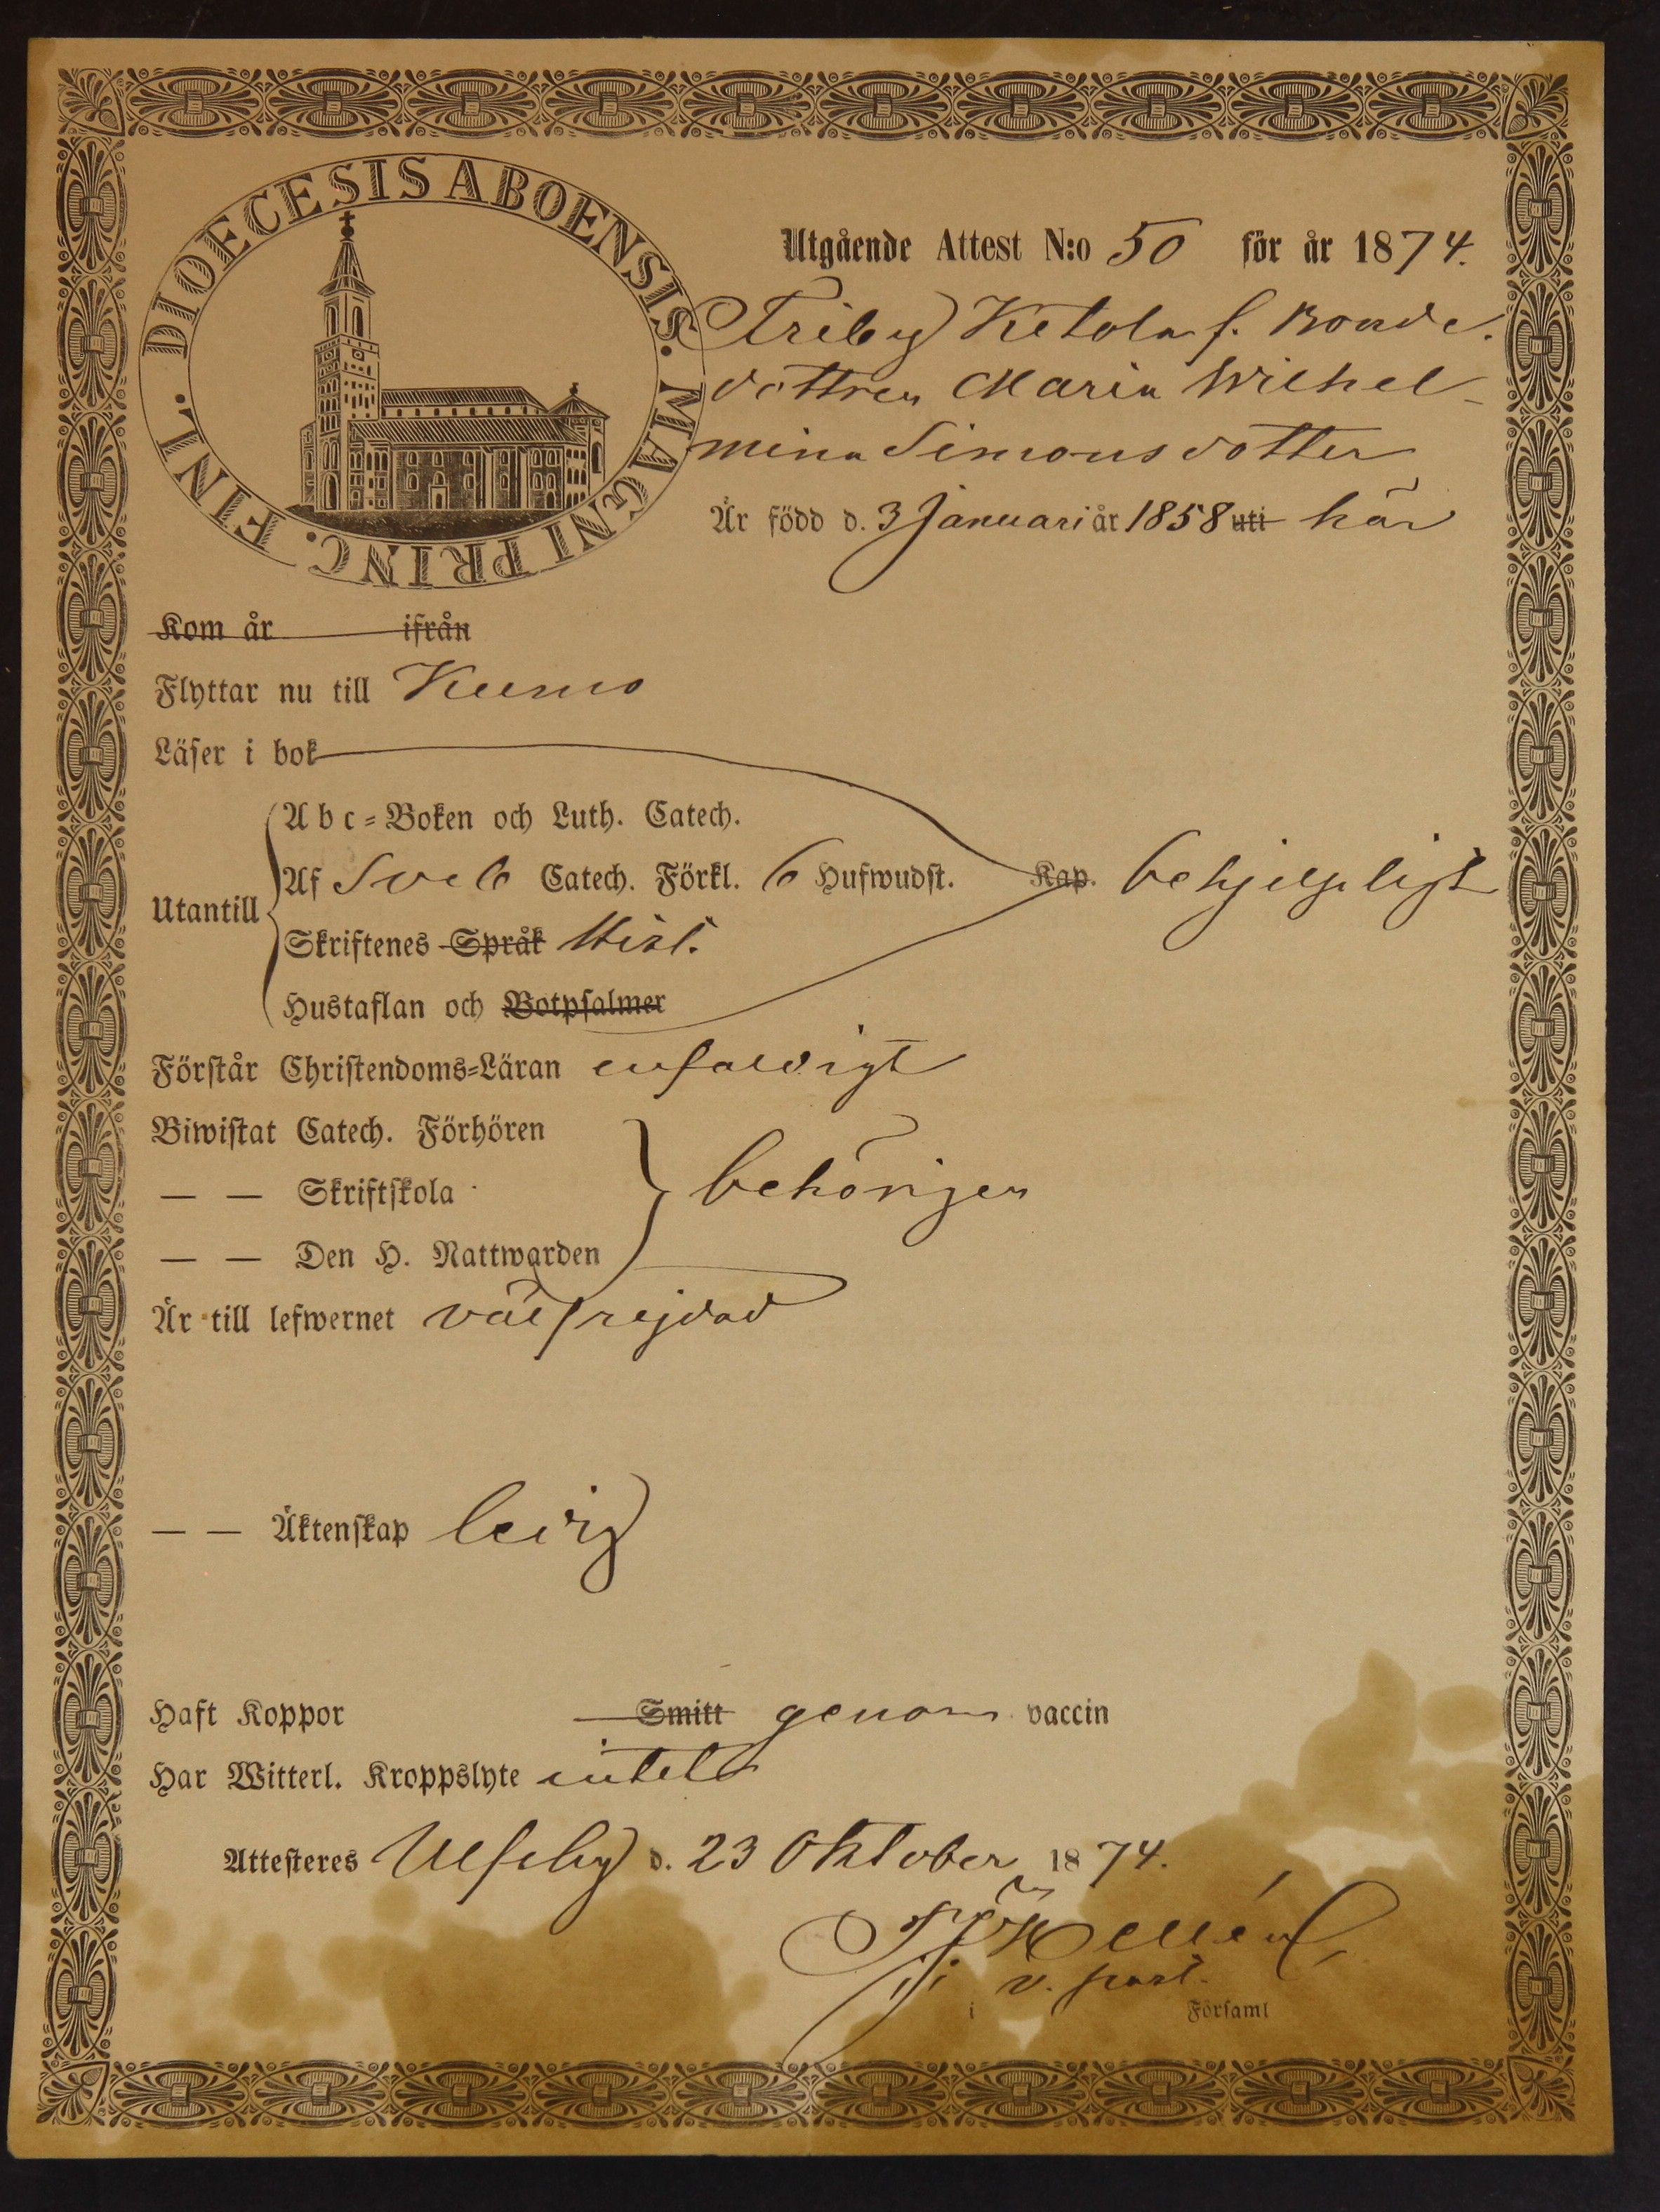 DIOECESIS ABOENSIS. MAGNI PRINC. FINL.
Utgående Attest N:o 50 för år 1874.
Friby Ketola f. Bonde
dottren Maria Wilhel-
mina Simonsdotter
Är född d. 3 Januari år 1858 uti här
Kom år ifrån
Flyttar nu till Kumo
Läser i bok
Abc=Boken och Luth. Catech.
Utantill
Af Sveb Catech. Förkl. 6 Hufwudst. Kap. behjelpligt
Skriftenes Språk Hist.
Hustaflan och Botpsalmer
Förstår Christendoms=Läran enfaldigt
Biwistat Catech. Förhören
— — Skriftskola behörigen
— — Den H. Nattwarden
Är till lefwernet välfrejdad
— — Äktenskap ledig
Haft Koppor Smitt genom vaccin
Har Witterl. Kroppslyte intet
Attesteres Ulfsby d. 23 Oktober 1874.
Hellén
v. past.
i Församl